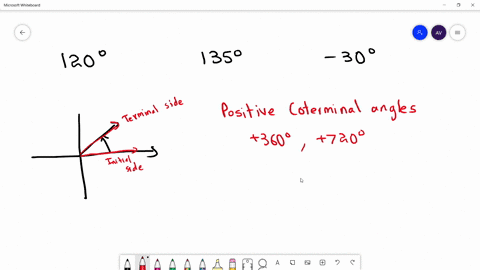 Microsoft Whiteboard
AV
120° 135° -30°
Positive Coterminal angles
+360° , +720°
Terminal side
Initial
side
A